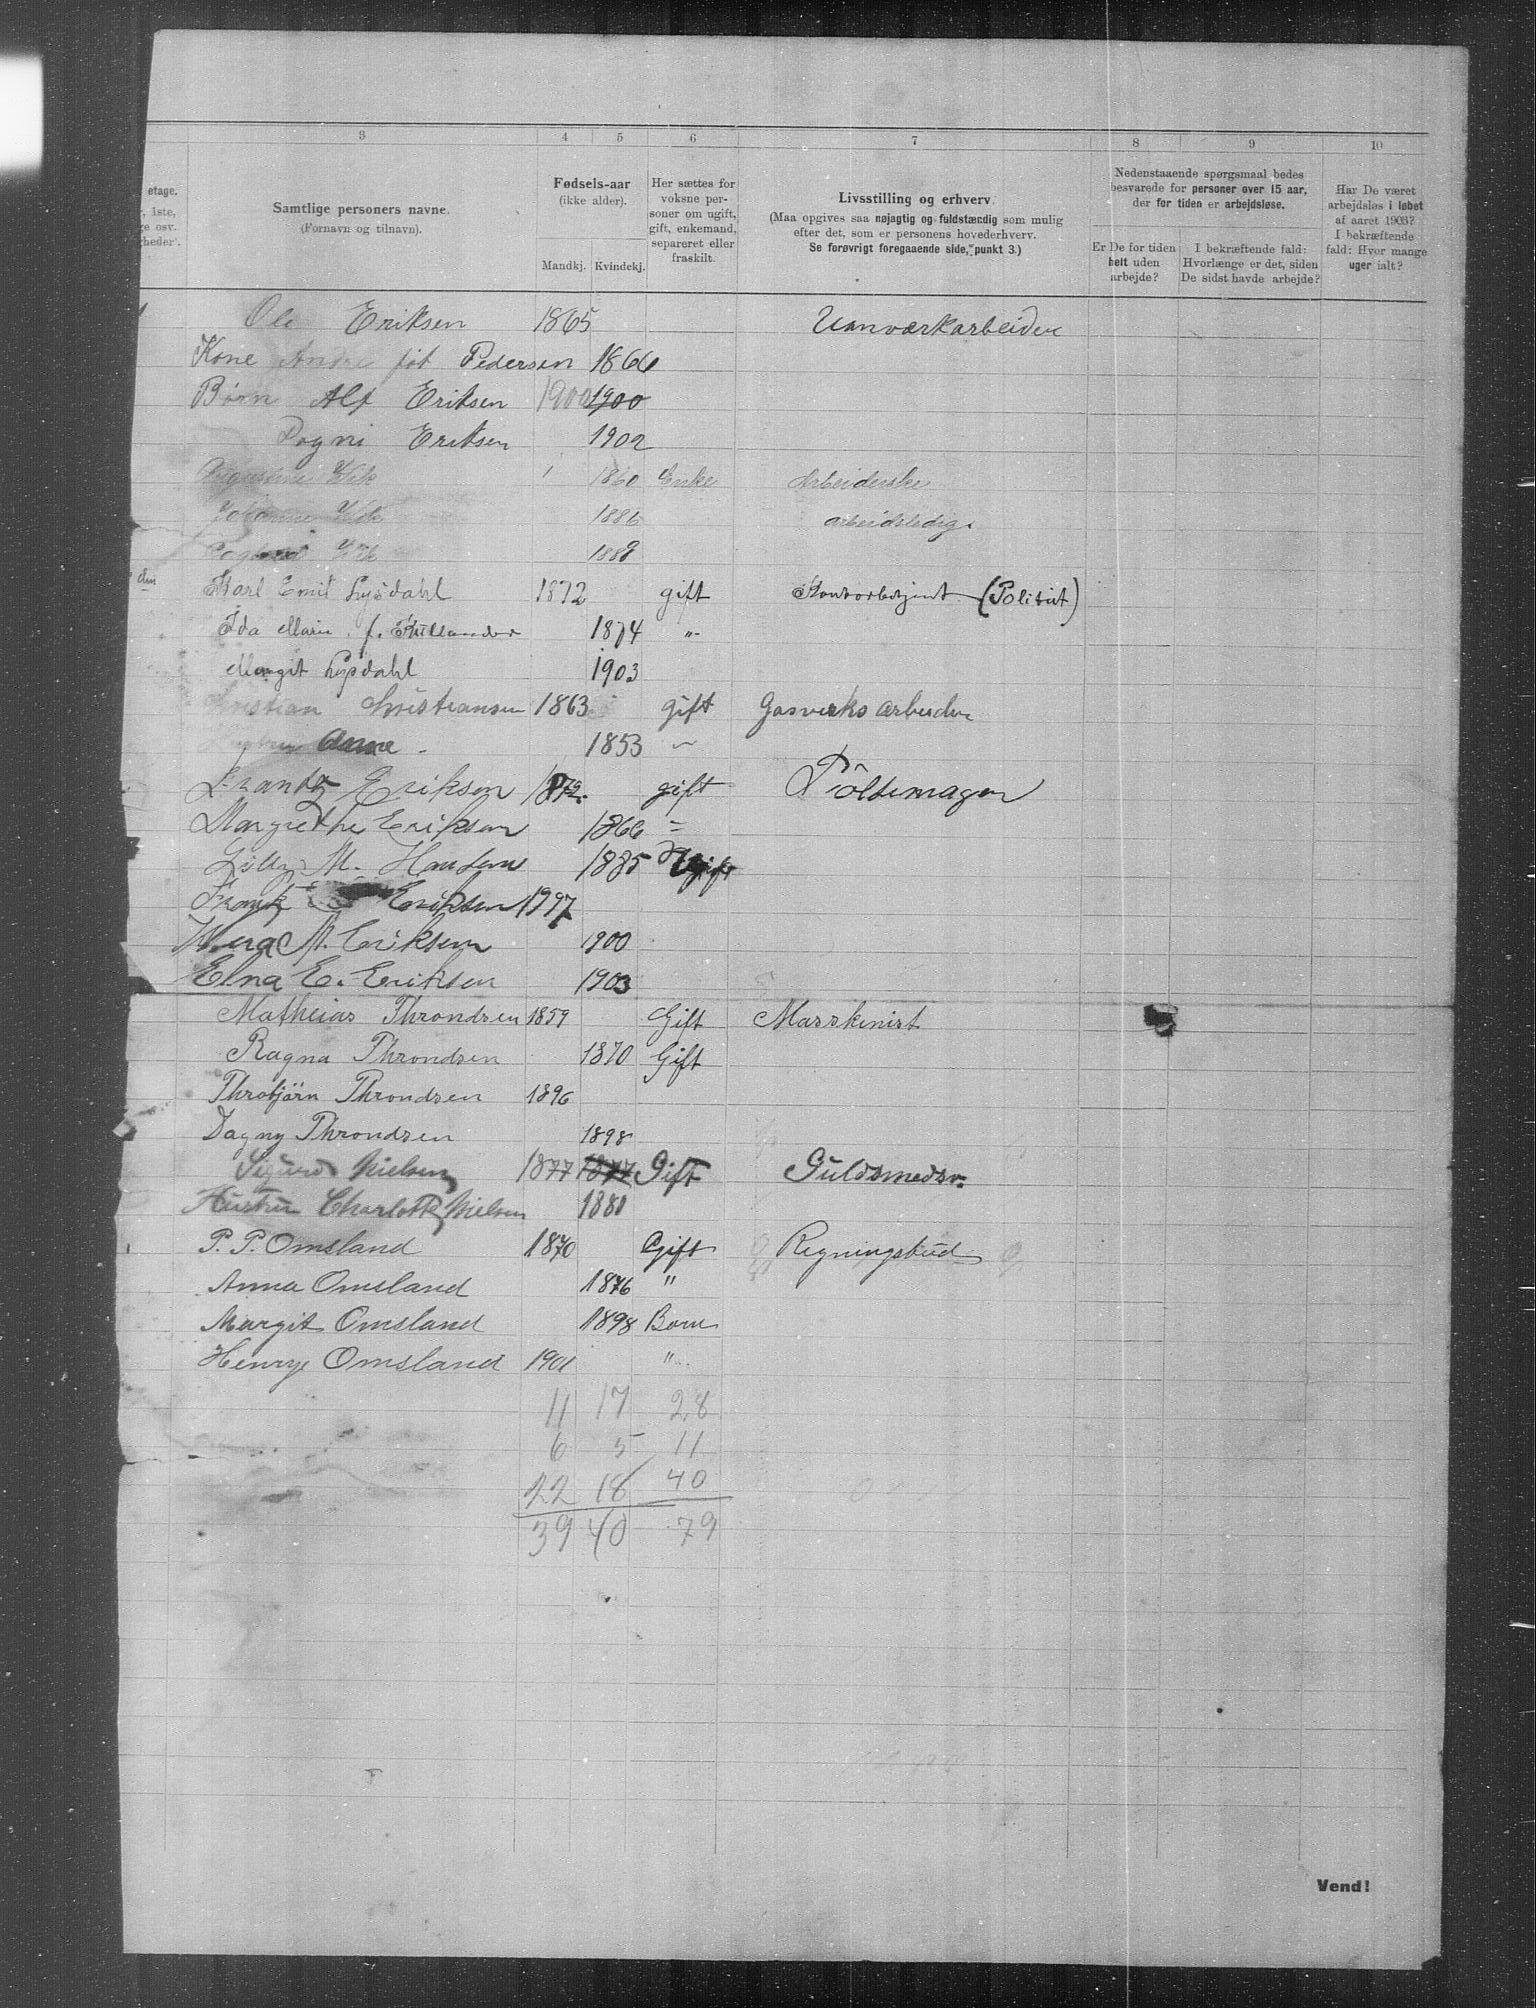 3 4 5 6 7 8 9 10
etage.
, 1ste,
ge osv.
gheder).
Samtlige personers navne.
(Fornavn og tilnavn).
Fødsels-aar
(ikke alder).
Mandkj. Kvindekj.
Her sættes for
voksne per-
soner om ugift,
gift, enkemand,
separeret eller
fraskilt.
Livsstilling og erhverv.
(Maa opgives saa nøjagtig og fuldstændig som mulig
efter det, som er personens hovederhverv.
Se forøvrigt foregaaende side, punkt 3.)
Nedenstaaende spørgsmaal bedes
besvarede for personer over 15 aar,
der for tiden er arbejdsløse.
Er De for tiden
helt uden
arbejde?
I bekræftende fald:
Hvorlænge er det, siden
De sidst havde arbejde?
Har De været
arbejdsløs i løbet
af aaret 1903?
I bekræftende
fald: Hvor mange
uger ialt?
Ole Eriksen 1865
Kone føt Pedersen 1866
Børn Alf Eriksen 1900 1900
Eriksen 1902
1860 Enke Arbeiderske
1886 arbeidsledig.
1889
Karl Emil Lysdahl 1872 gift (Politiet)
Ida Marie f. 1874 "
Margit Lysdahl 1903
Christiansen 1863 gift Gasverksarbeider
Anne 1853 "
Frantz Eriksen gift
Margrethe Eriksen 1866 =
M. 1885 Ugift
Frantz Eriksen
M. Eriksen 1900
Elna E. Eriksen 1903
Matheias Throndsen 1859 Gift Masskinist
Ragna Throndsen 1870 Gift
Throbjörn Throndsen 1896
Dagny Throndsen 1898
Sigurd Nielsen 1877 1877 Gift Guldsmedsv.
Hustru Charlotte Nielsen 1880
P. P. Omsland 1870 Gift Regningsbud
Anna Omsland 1876 "
Margit Omsland 1898 Born
Henry Omsland 1901 "
11 17 28
6 5 11
22 18 40
39 40 79
Vend!